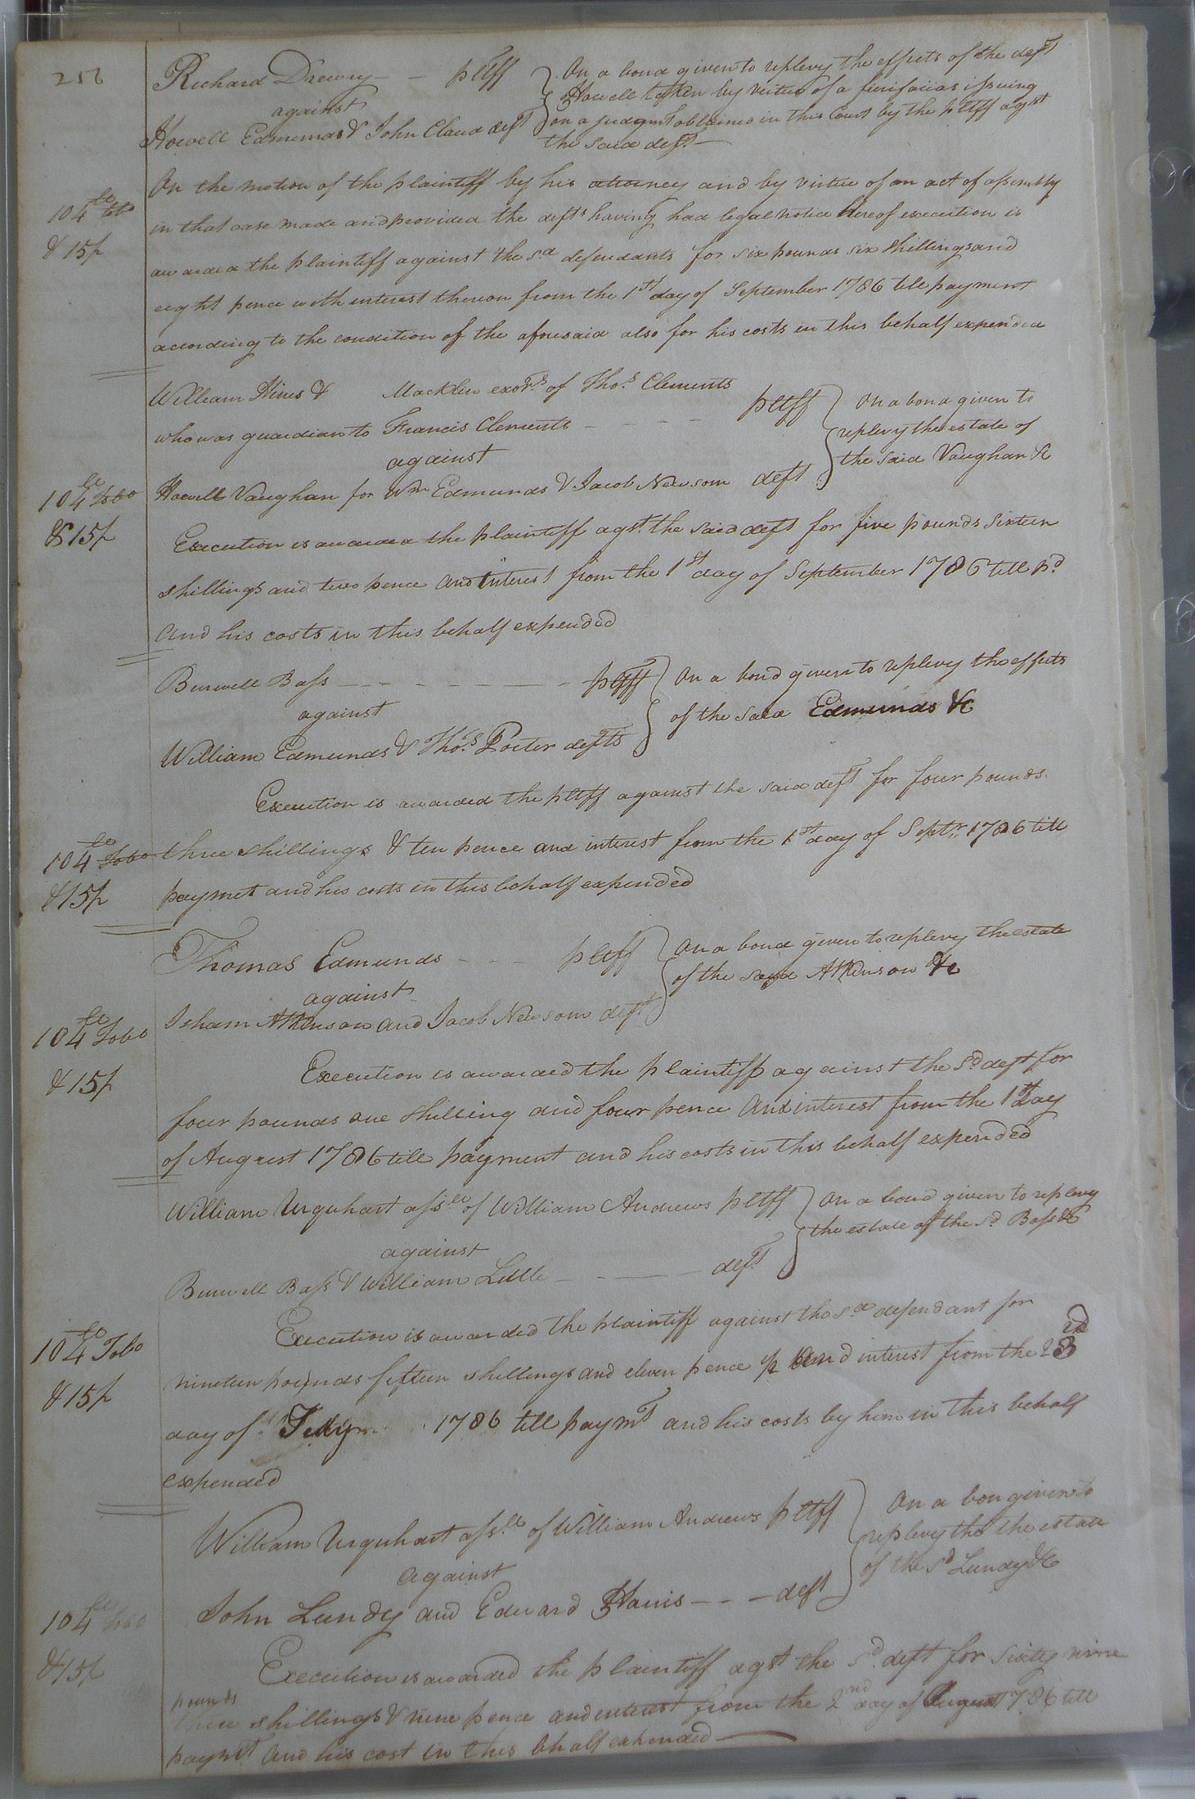 256
Richard Drewry - - pltff
against
Howell Edmunds & John Claud deft
On a bond given to replevy the effects of the deft
Howell taken by virtue of a fierifacias issuing
on a judgmt obtained in this Court by the pltff agst
the said deft -
104 lb Tobo
& 15/
On the motion of the plaintiff by his attorney and by virtue of an act of assembly
in that case made and provided the defts having had legal notice thereof execution is
awarded the plaintiff against the sd defendants for six pounds six shillings and
eight pence with interest thereon from the 1st day of September 1786 till payment
according to the condition of the aforesaid also for his costs in this behalf expended
William Hines & Macklin exors of Thos Clements
who was guardian to Francis Clements - - - - pltff
against
Howell Vaughan for Wm Edmunds & Jacob Newsom deft
On a bond given to
replevy the estate of
the said Vaughan &c
104 lb Tobo
& 15/
Execution is awarded the plaintiff agst the said deft for five pounds sixteen
shillings and two pence and interest from the 1st day of September 1786 till pd
and his costs in this behalf expended
Burwell Bass - - - - - - pltff
against
William Edmunds & Thos Porter defts
On a bond given to replevy the effects
of the said Edmunds &c
Execution is awarded the pltff against the said deft for four pounds
104 lb Tobo
& 15/
three shillings & ten pence and interest from the 1st day of Septr 1786 till
paymet and his costs in this behalf expended
Thomas Edmunds - - - pltff
against
Isham Atkinson and Jacob Newsom deft
On a bond given to replevy the estate
of the said Atkinson &c
104 lb Tobo
& 15/
Execution is awarded the plaintiff against the Sd deft for
four pounds one shilling and four pence and interest from the 1st day
of August 1786 till payment and his costs in this behalf expended
William Urquhart assee of William Andrews pltff
against
Burwell Bass & William Little - - - deft
On a bond given to replevy
the estate of the sd Bass &c
104 lb Tobo
& 15/
Execution is awarded the plaintiff against the sd defendant for
nineteen pounds fifteen shillings and eleven pence and interest from the 23rd
day of 1786 till paymt and his costs by him in this behalf
expended
William Urquhart assee of William Andrews pltff
against
John Lundy and Edward Harris - - - deft
On a bon given to
replevy the the estate
of the sd Lundy &c
104 lb Tobo
& 15/
Execution is awarded the plaintiff agst the sd deft for sixty nine
pounds
three shillings & nine pence and interest from the 2nd day of August 1786 till
paymt and his cost in this bhalf expended